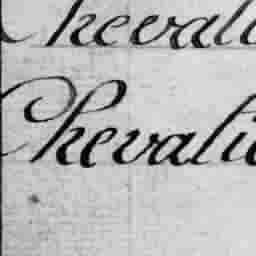 Chevali
Chevalie